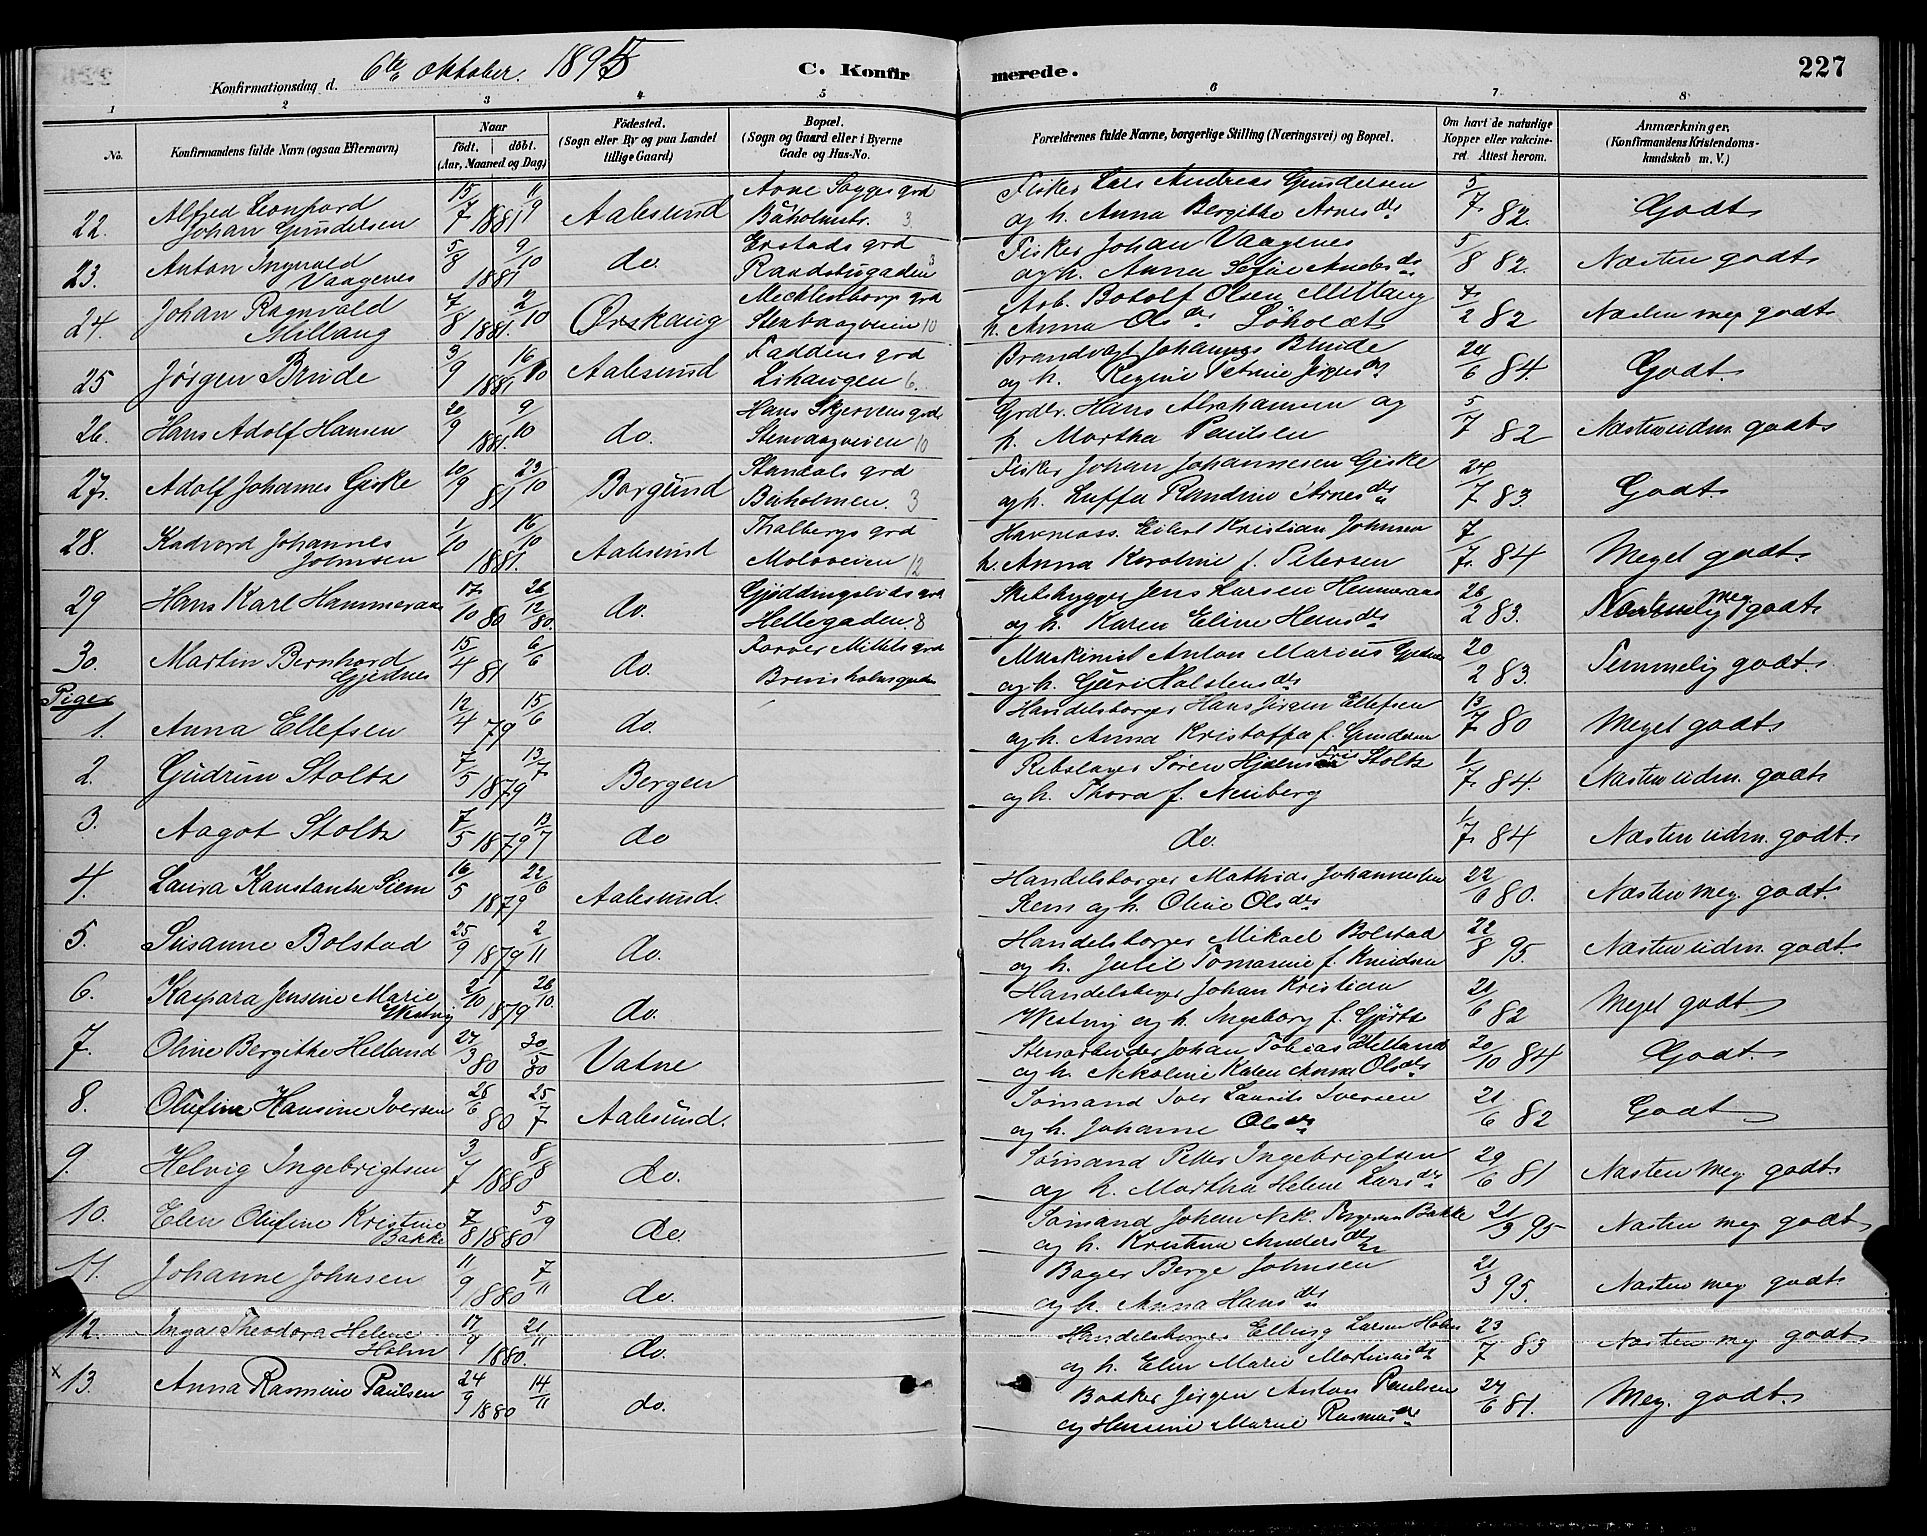 Konfirmationsdag d. 6te Oktober. 1895
C. Konfirmerede.
227
1 2 3 4 5 6 7 8
No.
Konfirmandens fulde Navn (ogsaa Efternavn)
Naar født. døbt. (Aar, Maaned og Dag)
Fødested. (Sogn eller By og paa Landet tillige Gaard)
Bopæl. (Sogn og Gaard eller i Byerne Gade og Hus-No.
Forældrenes fulde Navne, borgerlige Stilling (Næringsvei) og Bopæl.
Om havt de naturlige Kopper eller vakcineret. Attest herom.
Anmærkninger. (Konfirmandens Kristendomskundskab m. V.)
22. Alfred Leonhard Johan Gundersen 15/7 1881 11/9 Aalesund Arne Sagges grd Buholmstr. 3 Fisker Lars Andreas Gundersen og h. Anna Bergithe Arnesdr 5/7 82. Godt
23. Anton Ingvald Vaagenes 5/8 1881 9/10 do. Erstads grd Raadstugaden 3 Fisker Johan Vaagenes og h. Anna Sofie 5/8 82. Næsten godt
24. Johan Ragnvald Millang 7/8 1881. 2/10 Ørskaug Mecklenborgs grd Stenvaagveien 10 Arb. Botolf Olsen Millang h. Anna Olsdr Søholdt 2 82 Næsten meg godt
25 Jørgen Brude 3/9 1881 16/10 Aalesund Faddens grd Lihaugen 6. Brandvagt Johannes Brude og h. Regine Petrine 24/6 84. Godt.
26. Hans Adolf Hansen 20/9 1881. 9/10 do. Hans Skjervens grd Stenvaagveien 10 Grdbr. Hans Abrahamsen og h. Martha Paulsen 5/7 82 Næsten udm. godt
27. Adolf Johannes Giske 10/9 81 23/10 Borgund Standals grd Buholmen. 3 Fisker Johan Johannesen Giske og h. Luffa Randine Arnesdr 24/7 83. Godt.
28. Kadvard Johannes Johnsen 1/10 1881. 16/10 Aalesund Thalbergs grd Moloveien 12 Havneass. Eilert Kristian Johnsen h. Anna Karoline f. Petersen 7/7 84 Meget godt.
29 Hans Karl Hammeraas 17/10 80 26/12 80. do. Gjøddingslids grd Hellegaden. 8 Skibsbygger Jens Larsen Hammeraas og h. Karen Eline Hansdr 26/2 83. meg godt
30. Martin Bernhard Gjednes 15/4 81 6/6 do. Farver Mittets grd Maskinist Anton Marius Gjednes og h. Guri Halstensdr 20/2 83. Temmelig godt
Piger
1. Anna Ellefsen 12/4 79 15/6 do. Handelsborger Hans Jørgen Ellefsen og h. Anna Kristoffa f. Gundersen 13/7 80 Meget godt
2. Gudrun Stoltz 7/5 1879 13/7 Bergen Rebslager Søren Stoltz og h. Thora f. Neuberg 1/7 84. Næsten udm. godt
3. Aagot Stoltz 7/5 1879 13/7 do do. 1/7 84 Næsten udm. godt
4. Laura Konstantse Siem 16/5 1879 22/6 Aalesund. Handelsborger Mathias Johannessen Siem og h. Oline Olsdr 22/6 80. Næsten meg. godt
5. Susanne Bolstad 25/9 1879 2/11 do. Handelsborger Mikael Bolstad og h. Julie Tomasine f. Knudsen 22/8 95. Næsten udm. godt
6. Kaspara Jensine Marie Westvig 2/10 1879 26/10 do. Handelsborger Johan Kristian Westvig og h. Ingeborg f. Gjørtz 21/6 82 Meget godt
7. Oline Bergithe Helland 27/3 80 30/5 80 Vatne Stenarbeider Johan Tobias Helland og h. Nikoline Karen Anna Olsdr 20/10 84 Godt.
8. Olufine Hansine Iversen 25/6 80 25/7 Aalesund. Sømand Iver Laurits Iversen og h. Johanne Olsdr 21/6 82 Godt
9. Helvig Ingebrigtsen 3/7 1880 8/8 do. Sømand Petter Ingebrigtsen og h. Martha Helene Larsdr 29/6 81 Næsten meg. godt
10. Elen Olufine Kristine Bakke 7/8 1880 5/9 do. Sømand Johan Nik. Bakke og h. Kristine Andersdr 21/3 95 Næsten meg godt
11. Johanne Johnsen 11/9 1880 7/11 do. Bager Berge Johnsen og h. Anna Hansdr 21/3 95. Næsten meg. godt
12. Inga Theodora Helene Holm 17/9 1880. 21/11 do. Handelsborger Elling Larsen Holm og h. Elen Marie Martinusdr 23/7 83 Næsten meg godt
x 13. Anna Rasmine Paulsen 24/9 1880 14/11 do. Bødker Jørgen Anton Paulsen og Hansine Marie Rasmusdr 27/6 81. Meg. godt